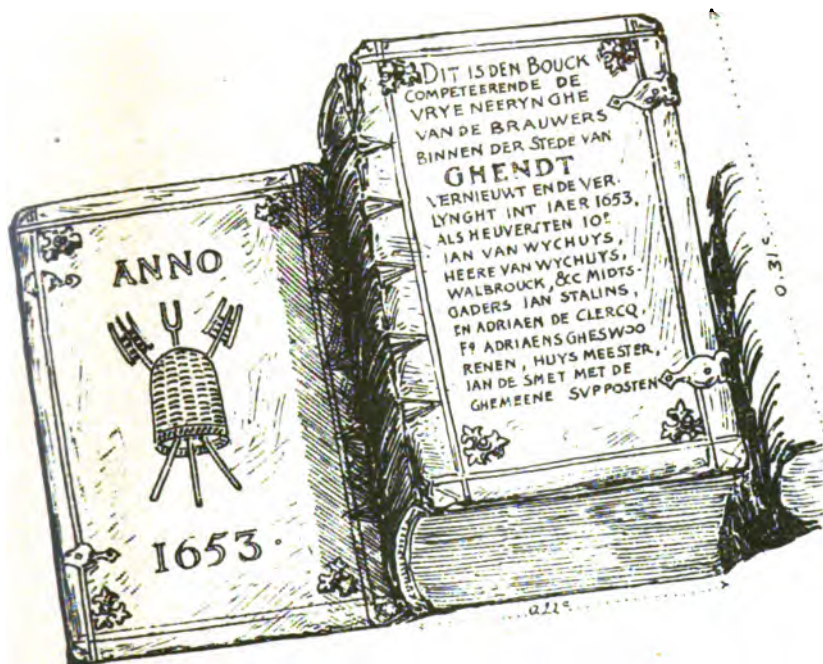 ANNO
1653.
DIT IS DEN BOUCK
COMPETEERENDE DE
VRYE NEERYNGHE
VAN DE BRAUWERS
BINNEN DER STEDE VAN
GHENDT
VERNIEUWT ENDE VER-
LYNGHT INT IAER 1653,
ALS HEUVERSTEN IOR
IAN VAN WYCHUYS,
HEERE VAN WYCHUYS,
WALBROUCK, &C MIDTS-
GADERS IAN STALINS,
EN ADRIAEN DE CLERCQ,
ADRIAENS GHESWOO
RENEN, HUYS MEESTER,
IAN DE SMET MET DE
GHEMEENE SVPPOSTEN
0.31c
0.22c